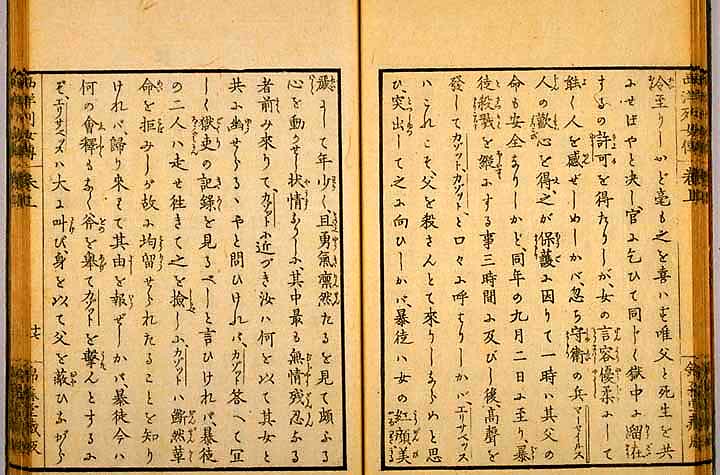 令至りしかど毫も之を喜ハず唯父と死生を共
にせばやと决し官に乞ひて同じく獄中に畱在
するの許可を得たりしが、女の言容優柔にして
能く人を感ぜしめしかバ忽ち守衛の兵マーセイルス
人の歡心を得之が保護に因りて一時ハ其父の
命も安全なりしかど、同年の九月二日に至り、暴
徒殺戮を縦にする事三時間に及びし後高聲を
發してカゾット、カゾット、と口々に呼はりしかバ、エリサベタス
ハこれこそ、父を殺さんとて來りしならめと思
ひ、突出して之に向ひしかバ、暴徒ハ女の紅顔美
麗にして年少く且勇氣凛然たるを見て頗ふる
心を動かせし状情ありしに、其中最も無情残忍なる
者前み來りて、カゾットに近づき汝ハ何を以て其女と
共に幽せらるゝやと問ひけれバ、カゾット答へて宜
しく獄吏の記録を見るべしと言ひけれバ、暴徒
の二人ハ走せ徃きて之を撿しに、カゾットハ断然革
命を拒みしが故に拘留せられたることを知り
けれバ、歸り來りて其由を報ぜしかバ、暴徒今ハ
何の會釋もなく斧を擧てカゾットを撃んとするに
ぞ、エリサベタスハ大に叫び身を以て父を蔽ひながら
西洋列女傳 卷上
廿七